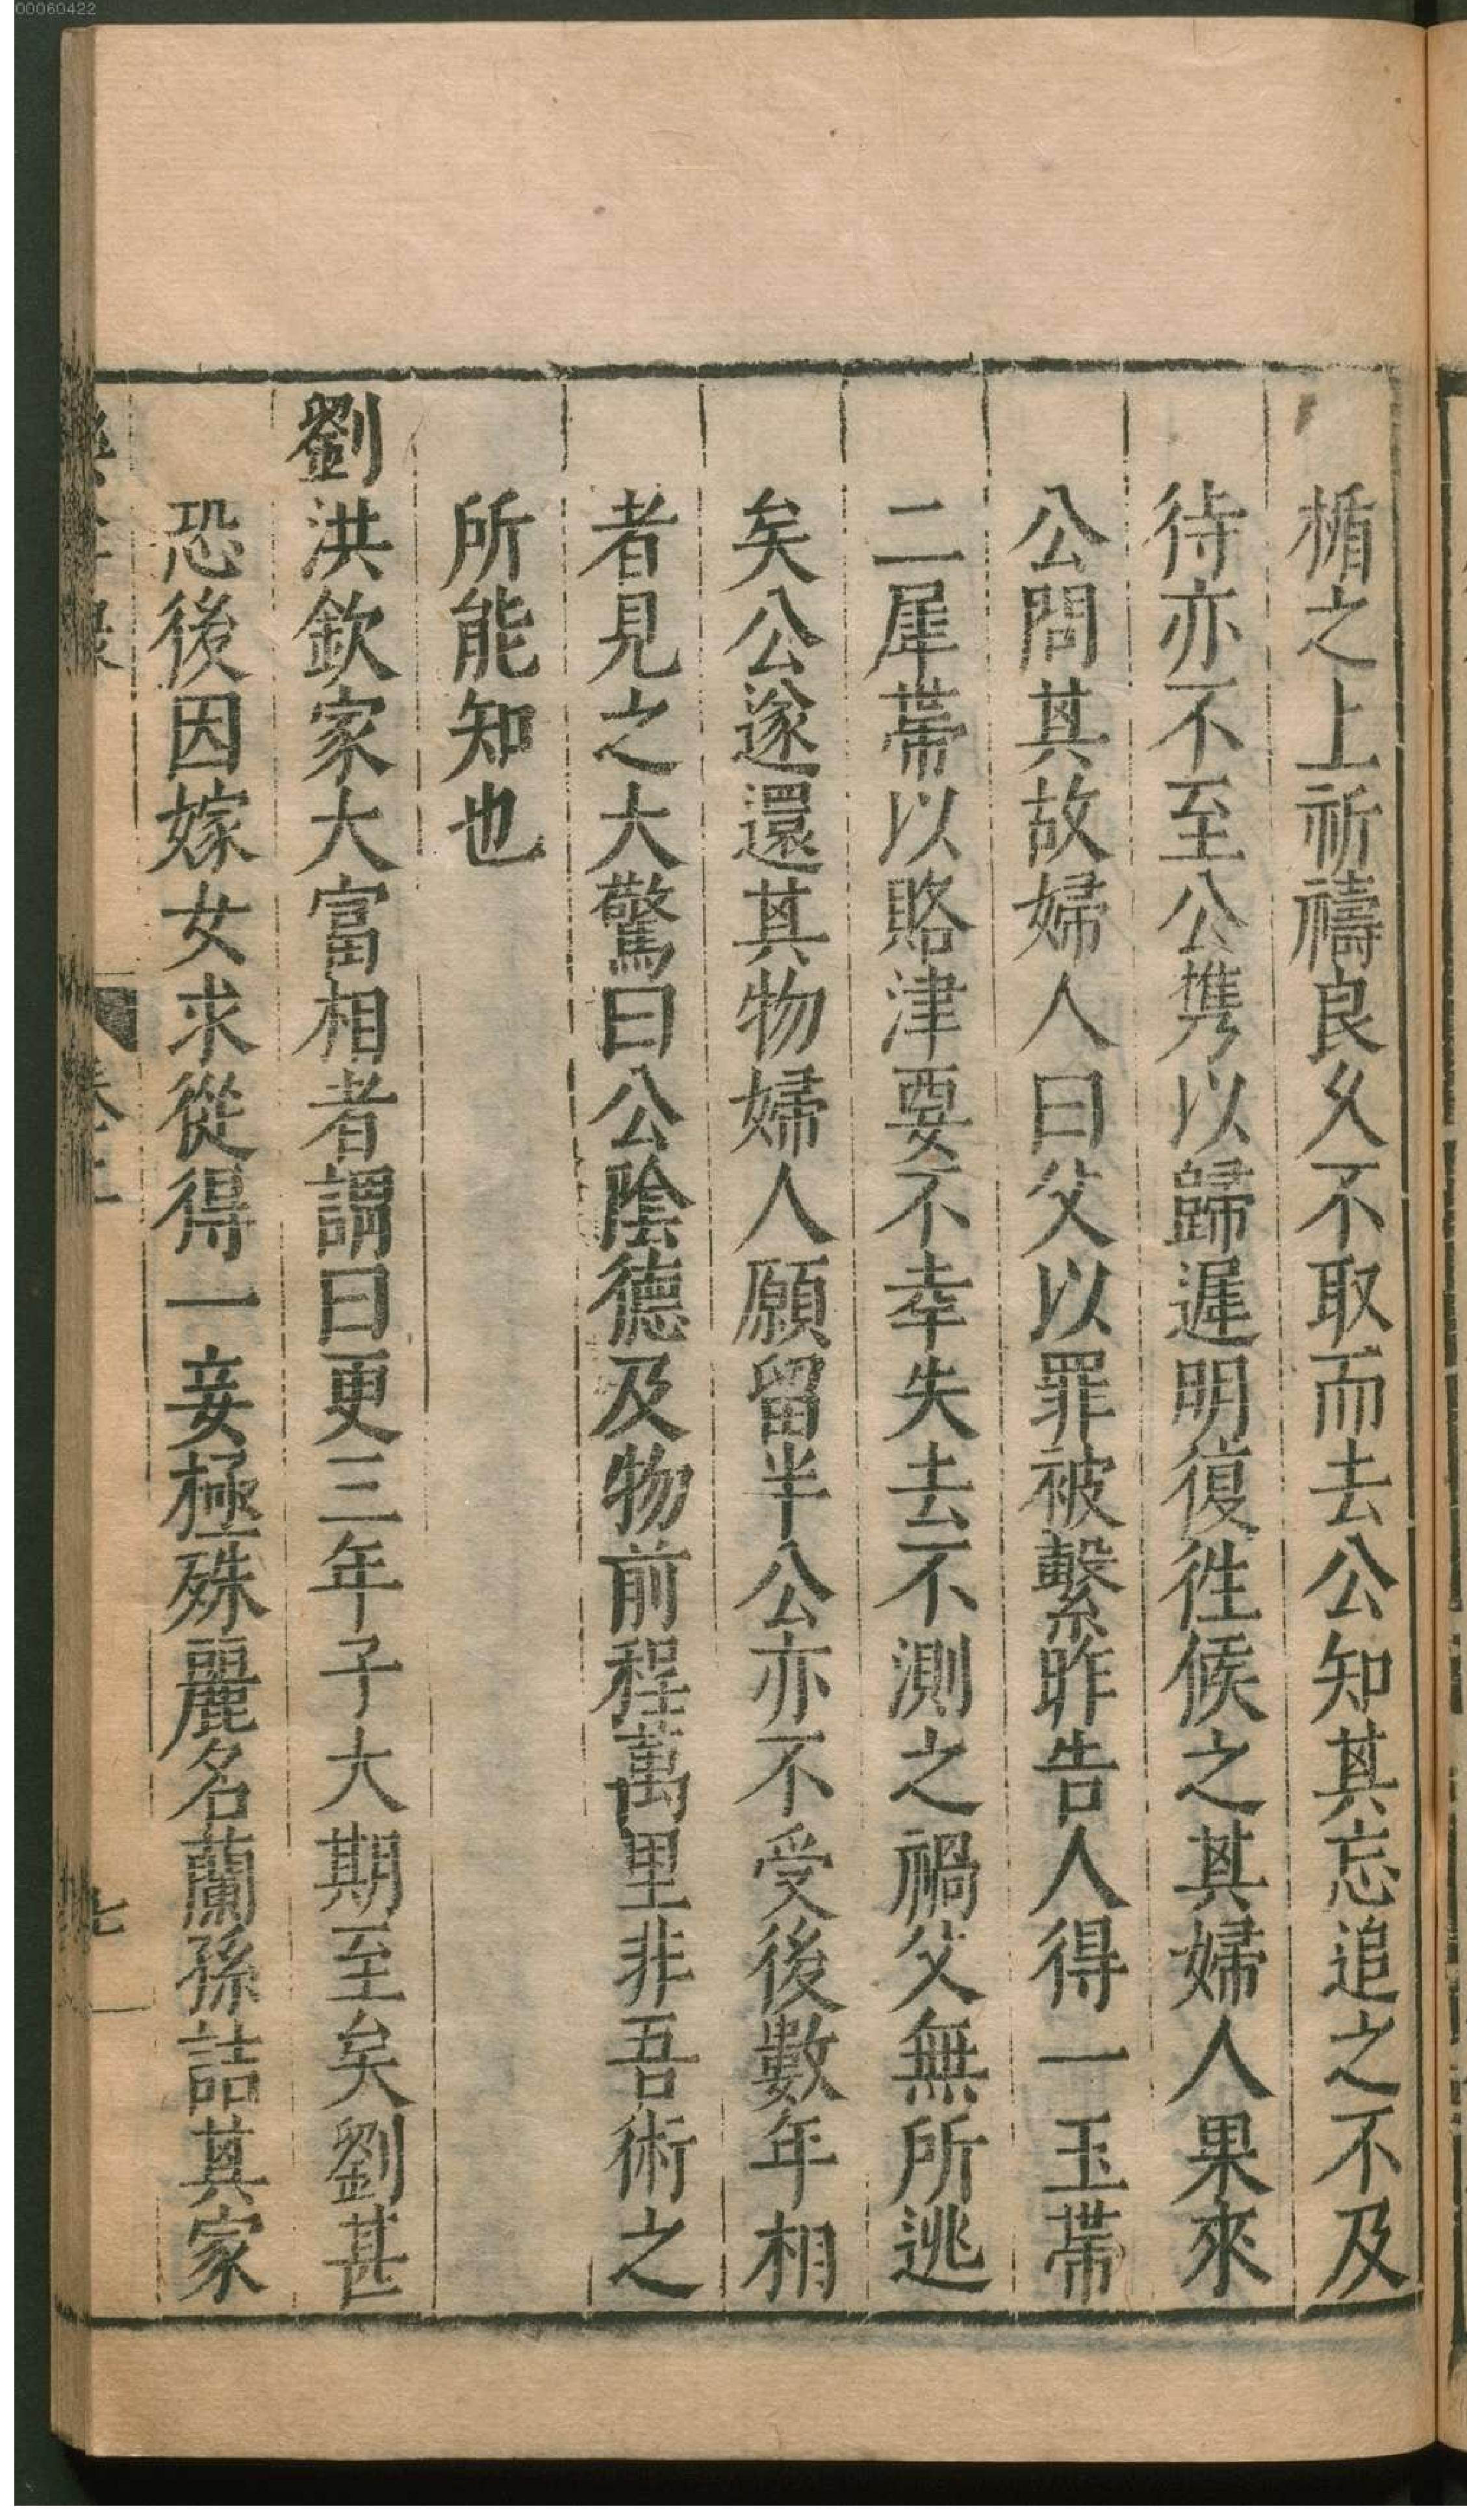 楯之上祈禱良久不取而去公知其忘追之不及
待亦不至公携以歸遲明復徃候之其婦人果來
公問其故婦人曰父以罪被繫昨告人得一玉帶
二犀帶以賂津要不幸失去不測之禍父無所逃
矣公遂還其物婦人願留半公亦不受後數年相
者見之大驚曰公陰德及物前程萬里非吾術之
所能知也
劉洪欽家大富相者謂曰更三年子大期至矣劉甚
恐後因嫁女求從得一妾極殊麗名蘭孫詰其家
七
00060422